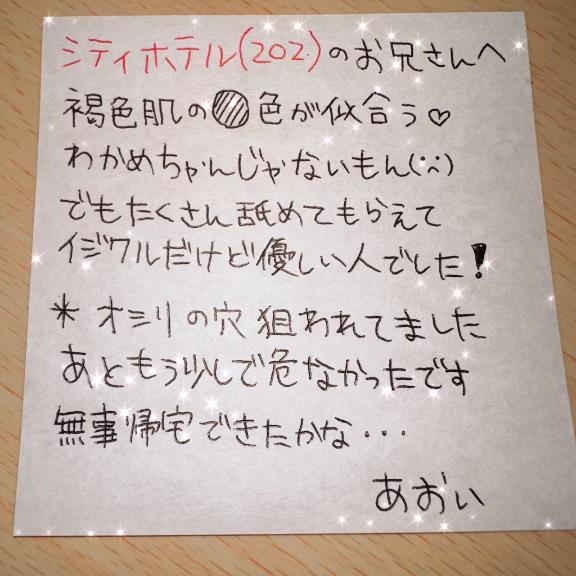 シティホテル(202)のお兄さんへ
褐色肌の色が似合う♡
わかめちゃんじゃないもん(¨)
でもたくさん舐めてもらえて
イジワルだけど優しい人でした!
* オミリの穴狙われてました
あともう少しで危なかったです
無事帰宅できたかな・・・
あおい